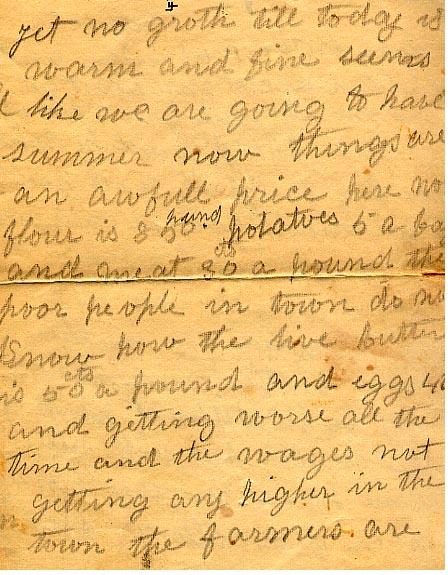 4
yet no groth till today is
warm and fine seems
like we are going to have
summer now things are
an awfull price here no
flour is 8 50 hund potatoes 5 a ba
and meat 30 cts a pound the
poor people in town do n
know how the live butter
is 50 cts a pound and eggs 40
and getting worse all the
time and the wages not
getting any higher in the
town the farmers are